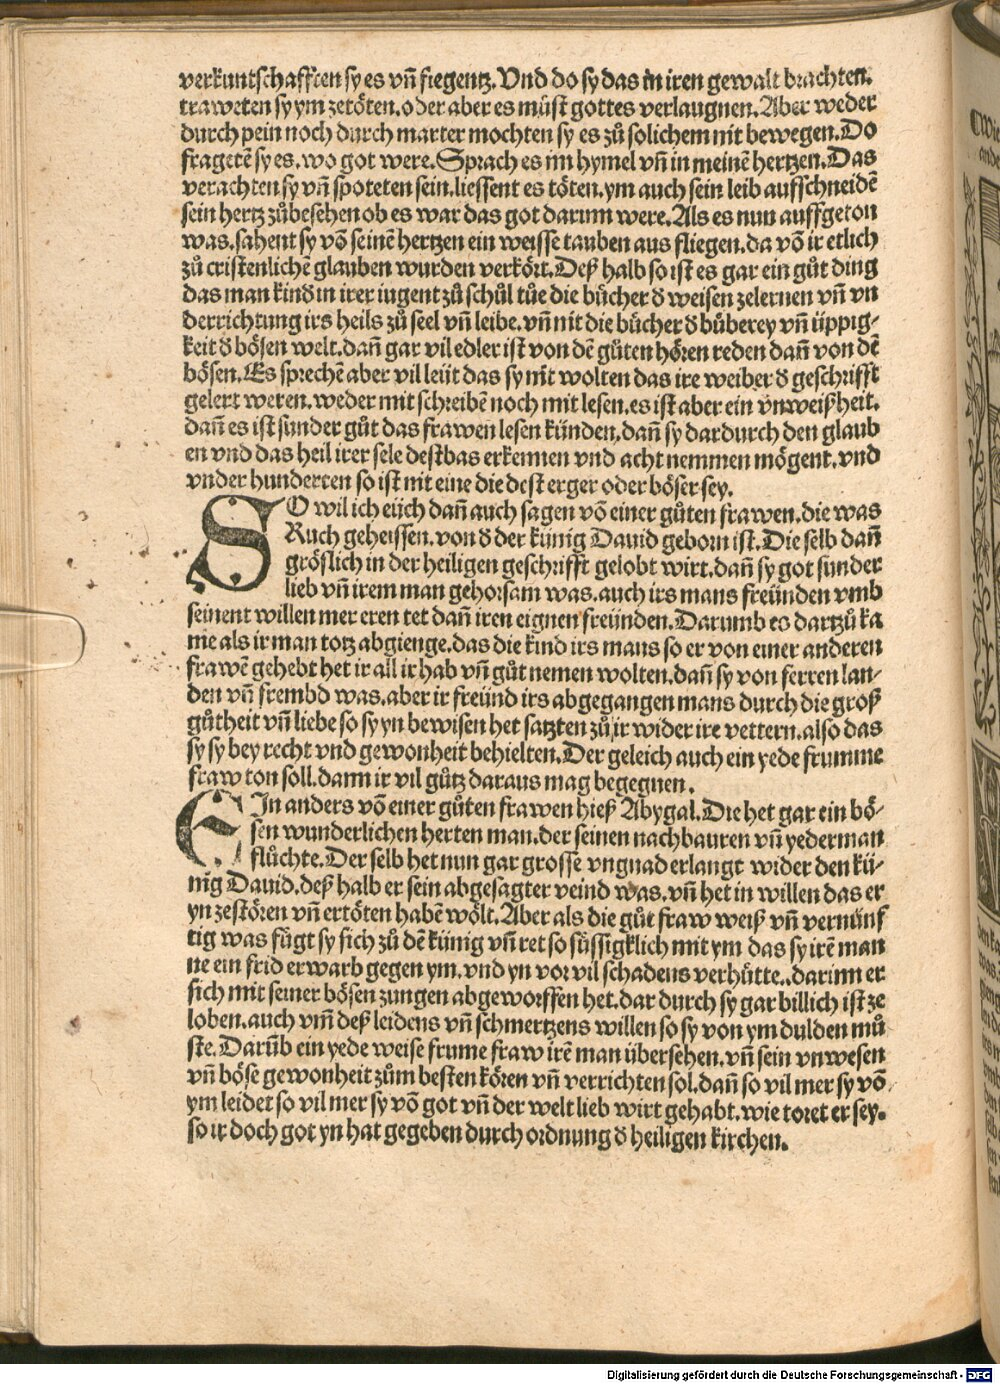 verkuntschafften sy es vñ fiegentz. Vnd do sy das in iren gewalt brachten.
traweten sy ym zetöten. oder aber es müst gottes verlaugnen. Aber weder
durch pein noch durch marter mochten sy es zů solichem nit bewegen. Do
fragetẽ sy es. wo got were. Sprach es im hymel vñ in meinẽ hertzen. Das
verachten sy vñ spoteten sein. liessent es töten. ym auch sein leib aufschneidẽ
sein hertz zůbesehen ob es war das got darinn were. Als es nun auffgeton
was. sahent sy võ seinẽ hertzen ein weisse tauben aus fliegen. da võ ir etlich
zů cristenlichẽ glauben wurden verkört. Deß halb so ist es gar ein gůt ding
das man kind in irer iugent zů schůl tůe die bücher d weisen zelernen vñ vn
derrichtung irs heils zů seel vñ leibe. vñ nit die bücher d bůberey vñ üppig-
keit d bösen welt. dañ gar vil edler ist von dẽ gůten hören reden dañ von dẽ
bösen. Es sprechẽ aber vil leüt das sy nit wolten das ire weiber d geschrifft
gelert weren. weder mit schreibẽ noch mit lesen. es ist aber ein vnweißheit.
dañ es ist sunder gůt das frawen lesen künden. dañ sy dardurch den glaub
en vnd das heil irer sele destbas erkennen vnd acht nemmen mögent. vnd
vnder hunderten so ist nit eine die dest erger oder böser sey.
SO wil ich eüch dañ auch sagen võ einer gůten frawen. die was
Ruch geheissen. von d der künig Dauid geborn ist. Die selb dañ
gröslich in der heiligen geschrifft gelobt wirt. dañ sy got sunder
lieb vñ irem man gehorsam was. auch irs mans freünden vmb
seinent willen mer eren tet dañ iren eignen freünden. Darumb es dartzů ka
me als ir man totz abgienge. das die kind irs mans so er von einer anderen
frawẽ gehebt het ir all ir hab vñ gůt nemen wolten. dañ sy von ferren lan-
den vñ frembd was. aber ir freünd irs abgegangen mans durch die groß
gůtheit vñ liebe so sy yn bewisen het satzten zů ir wider ire vettern. also das
sy sy bey recht vnd gewonheit behielten. Der geleich auch ein yede frumme
fraw ton soll. dann ir vil gůtz daraus mag begegnen.
EIn anders võ einer gůten frawen hieß Abygal. Die het gar ein bö-
sen wunderlichen herten man. der seinen nachbauren vñ yederman
flůchte. Der selb het nun gar grosse vngnad erlangt wider den kü-
nig Dauid. deß halb er sein abgesagter veind was. vñ het in willen das er
yn zestören vñ ertöten habẽ wölt. Aber als die gůt fraw weiß vñ vernünf
tig was fůgt sy sich zů dẽ künig vñ ret so süssigklich mit ym das sy irẽ man
ne ein frid erwarb gegen ym. vnd yn vor vil schadens verhütte.. darinn er
sich mit seiner bösen zungen abgeworffen het. dar durch sy gar billich ist ze
loben. auch vm̃ deß leidens vñ schmertzens willen so sy von ym dulden mů
ste. Darũb ein yede weise frume fraw irẽ man übersehen. vñ sein vnwesen
vñ böse gewonheit zům besten kören vñ verrichten sol. dañ so vil mer sy võ
ym leidet so vil mer sy võ got vñ der welt lieb wirt gehabt. wie toret er sey.
so ir doch got yn hat gegeben durch ordnung d heiligen kirchen.
Digitalisierung gefördert durch die Deutsche Forschungsgemeinschaft - DFG